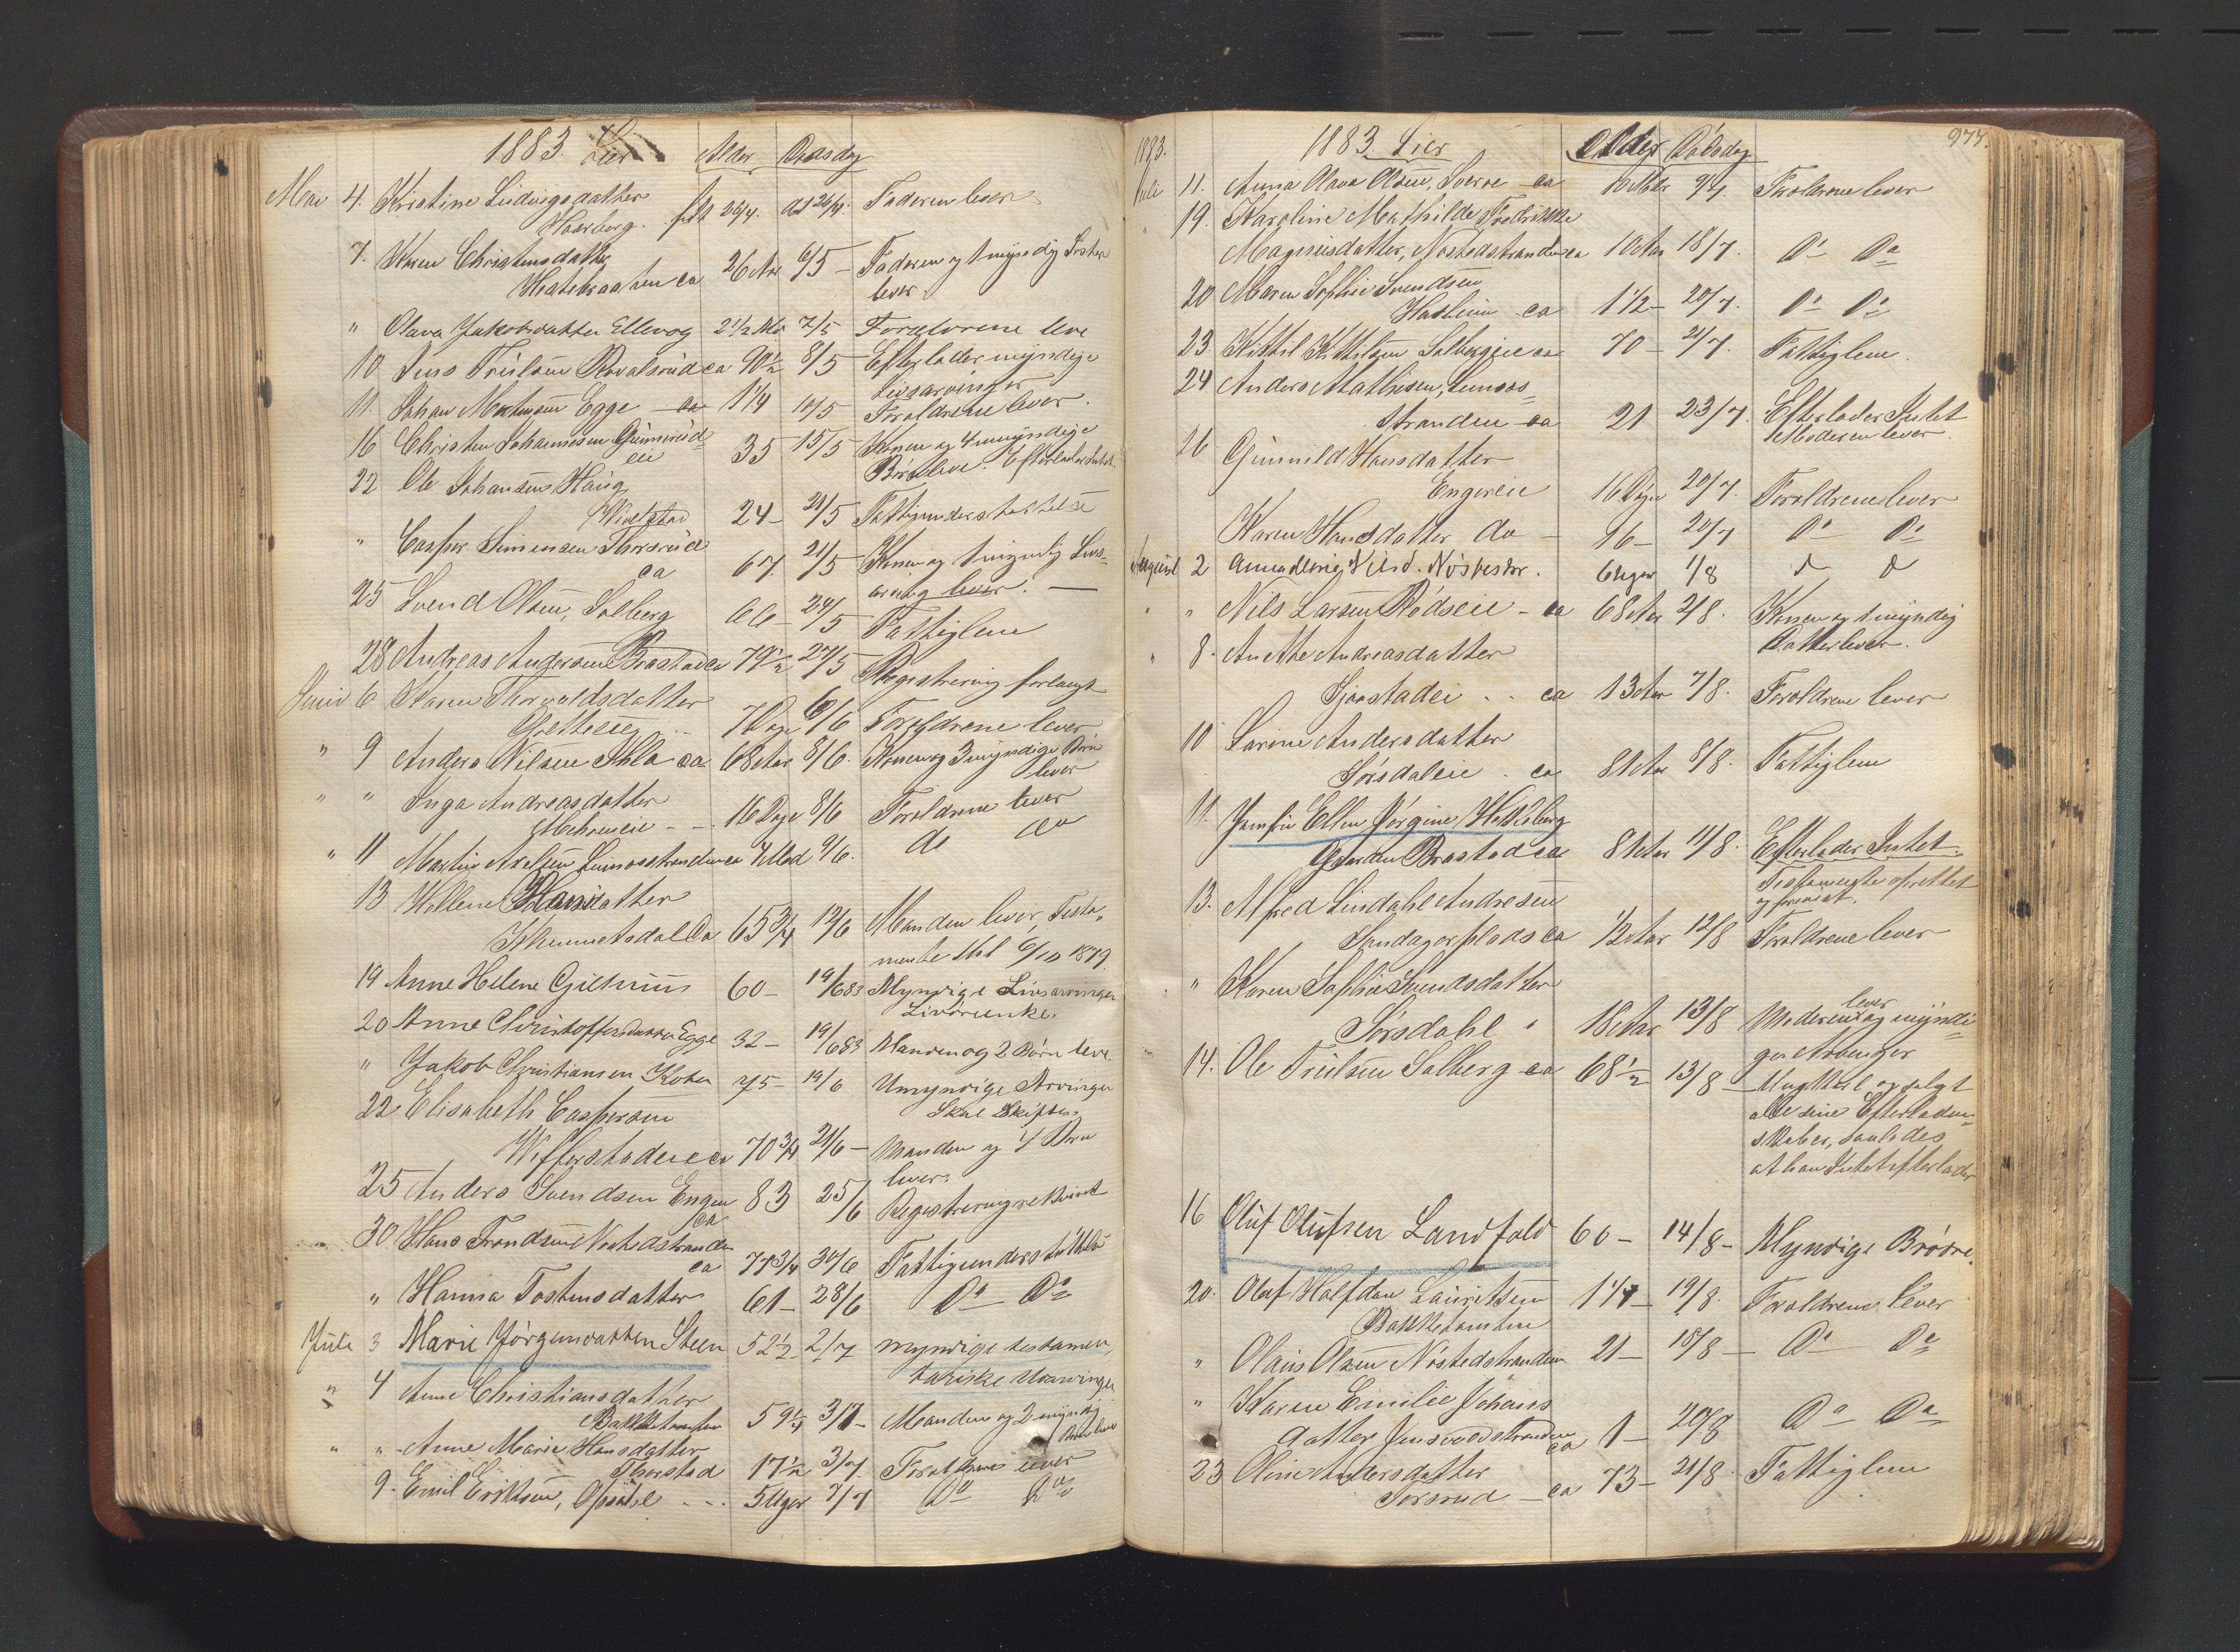 1883. Lier Alder Dødsdag
Mai 4. Kirstine Ludvigsdatter
Haarberg. født 24/4. død 26/4. Faderen lever
7. Karen Christensdatter
ca 26 Aar 6/5 - Faderen og 1 myndig Søster
lever.
" Olava Jakobsdatter Ellevog 2 1/2 Md 7/5 Forældrene leve
10 Jens Trulsen ca 90 1/2 8/5 Efterlader myndige
Livsarvinger
11. Johan Mathisen Egge - ca 1 1/4 10/5 Forældrene lever.
16 Christen Johannesen Gunnerud
eie 35 15/5 Konen og 4 myndige
Børn leve. Efterlader Intet.
22 Ole Johansen Haug
Vivelstad 24 - 21/5 Fattigunderstøttelse
" Casper Simensen Thorsrud
ca 67. 21/5 Konen og 1 myndig Livs-
arving lever. -
25 Svend Olsen, Solberg 66 - 24/5 Fattiglem
28 Andreas Andersen Brastad ca 79 1/2 27/5 Registrering forlangt
Juni 6 Karen Thorvaldsdatter
7 Dage 6/6 Forældrene lever
" 9 Anders Nilsen Ihla ca 68 Aar 8/6. Konen og 3 myndige Børn
lever
" " Inga Andreasdatter
Meheneie - - 16 Dage 8/6 Forældrene lever
" 11 Martin Axelsen Linnesstranden ca 4 Md 9/6. do do
13 Hellene Hansdatter
ca 65 3/4 12/6 Manden lever, Testa-
mente thl 6/10 1879.
19 Anne Helene Gilhuus 60 - 19/6 83 Myndige Livsarvinger
20 Anne Christoffersdatter Egge 32 - 19/6 83 Manden og 2 Børn leve.
" Jakob Christiansen 75 - 19/6 Umyndige Arvinger
Skal Skiftes.
22 Elisabeth Caspersen
Wifferstadeie ca 70 3/4 21/6 - Manden og 4 Børn
lever.
25 Anders Svendsen Engen
ca 83 25/6 Registrering rekvirert
30 Hans Trondsen Nøstedstranden
ca 77 3/4 30/6 Fattigunderstøttelse
" Hanna Tostensdatter 61 - 28/6 Do Do
Juli 3 Marie Jørgensdatter Steen 52 1/2 2/7 myndige testamen-
tariske Udarvinger
" 4 Anne Christiansdatter
Bakketomten 59 1/4 3/7 - Manden og 2 myndig
Børn lever
" " Anne Marie Hansdatter
Thorstad 17 1/2 3/7. Forældrene lever
9. Emil Eriksen, Opsahl - - 5 Uger 7/7 Do Do
977.
1883. 1883. Lier Alder Dødsdag
Juli 11. Anna Olava Olsen, Sverre ca 10 Mdr 9/7. Forældrene lever
" 19. Karoline Mathilde Fredrikke
Magnusdatter, Nøstedstranden ca 10 Aar 18/7. Do Do
20 Maren Sophie Svendsen
Haslum ca 1 1/2 - 20/7. Do Do
23 Kittil Kittilsen Solbergeie ca 70 - 21/7. Fattiglem.
24 Anders Mathisen, Linnes-
stranden ca 21 23/7. Efterlader Intet
Moderen lever.
26 Gunnild Hansdatter
Engereie 16 Dage 20/7. Forældrene lever
Karen Hansdatter do - 16 - 20/7 Do Do
August 2 6 Uger 1/8 do do
" " Nils Larsen Rødseie - ca 68 Aar 2/8. Konen og 1 myndig
Datter lever.
" 8. Anette Andreasdatter
Gjerstadei - - ca 13 Aar 7/8. Forældrene lever
10 Karine Andersdatter
Sørsdaleie. ca 81 Aar 8/8. Fattiglem
11. Jomfru Ellen Jørgine Hasleberg
Gaarden Brastad ca 81 Aar 11/8. Efterlader Intet.
Testamente oprettet
13. Alfred Lindahl Andresen
Sandager plads ca 1/2 Aar 12/8 Forældrene lever
" Karen Sophie Svendsdatter
Sørsdahl " 18 Aar 13/8 Moderen lever og myndi-
ge Arvinger
14. Ole Trulsen Solberg ca 68 1/2 13/8 - Ungkarl og solgt
alle sine Efterladen-
skaber, saaledes
at han Intet efterlader
16 Oluf Olufsen Landfald 60 - 14/8 - Myndige Brødre.
20. Olaf Halfdan Lauritsen
Bakketomten 1 1/4 - 19/8. Forældrene lever
" Olaus Olsen Nøstedstranden 21 - 18/8 - Do Do
" Karen Emilie Johans
datter ca 1 - 20/8 Do Do
23 Oline Andersdatter
Torsrud - ca 73 - 21/8. Fattiglem